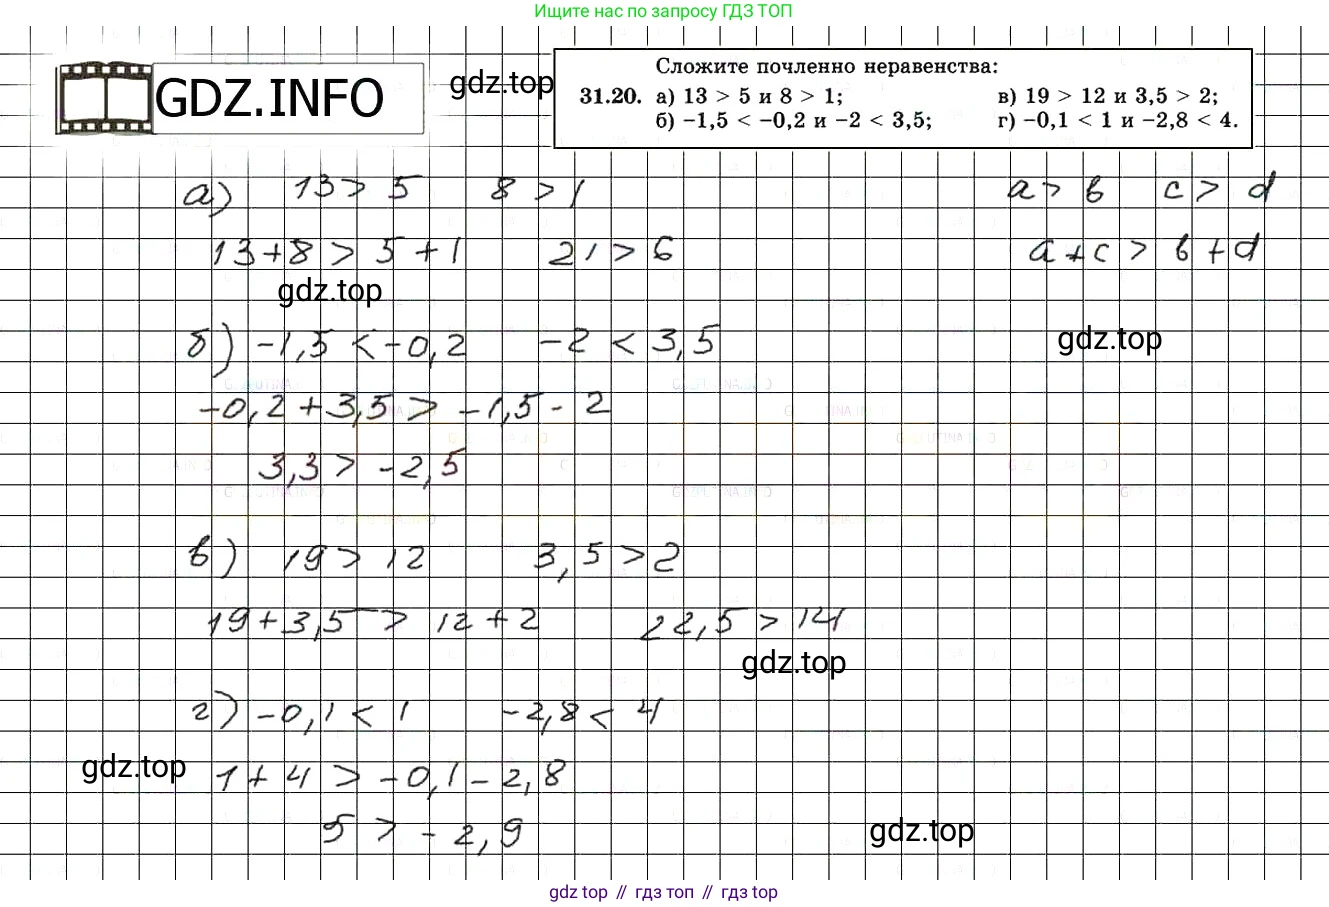 Ищите нас по запросу ГДЗ ТОП
GDZ.INFO
gdz.top
Сложите почленно неравенства:
31.20. а) 13 > 5 и 8 > 1; в) 19 > 12 и 3,5 > 2;
б) −1,5 < −0,2 и −2 < 3,5; г) −0,1 < 1 и −2,8 < 4.
а) 13 > 5 8 > 1 a > b c > d
13+8 > 5+1 21 > 6 a+c > b+d
gdz.top
б) -1,5 < -0,2 -2 < 3,5
gdz.top
-0,2+3,5 > -1,5-2
3,3 > -2,5
в) 19 > 12 3,5 > 2
19+3,5 > 12+2 22,5 > 14
gdz.top
г) -0,1 < 1 -2,8 < 4
gdz.top
1+4 > -0,1-2,8
5 > -2,9
gdz.top
gdz top // гдз топ // gdz top